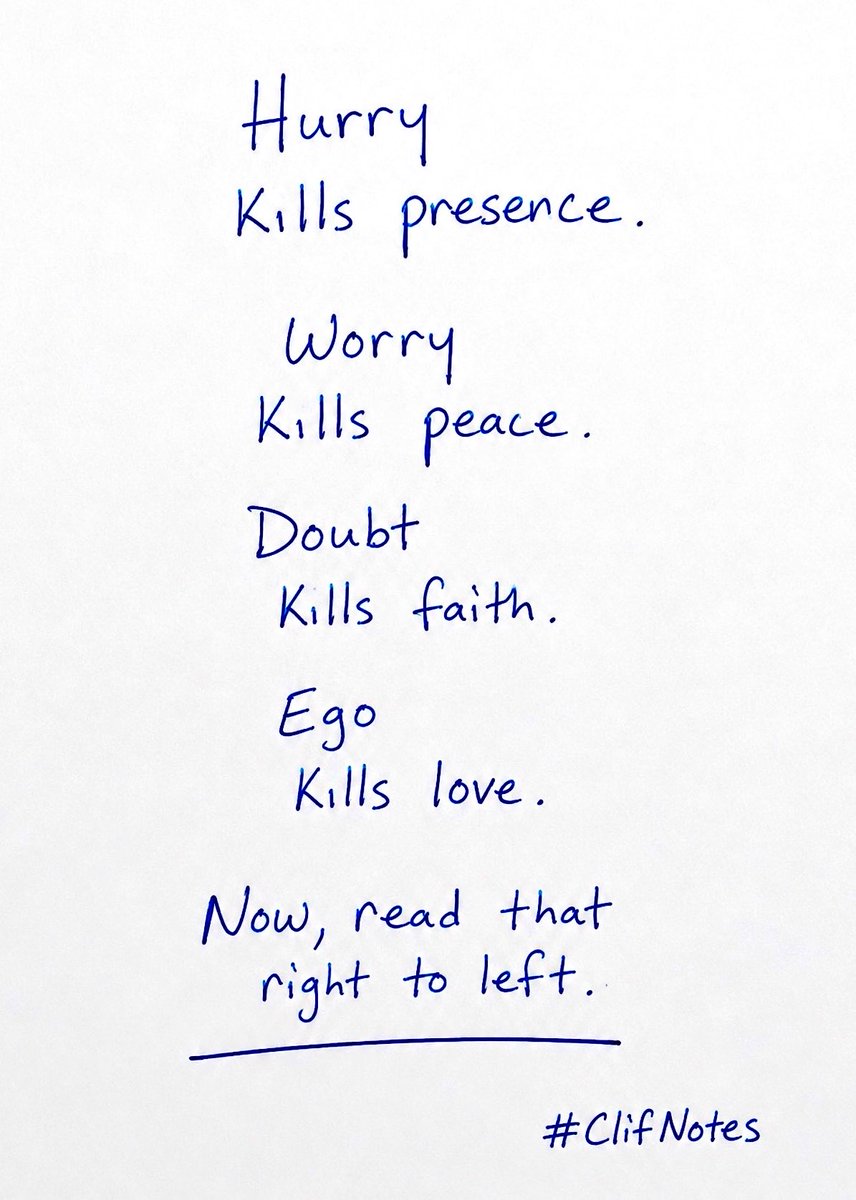 Hurry
Kills presence.
Worry
Kills peace.
Doubt
Kills faith.
Ego
Kills love.
Now, read that
right to left.
#ClifNotes